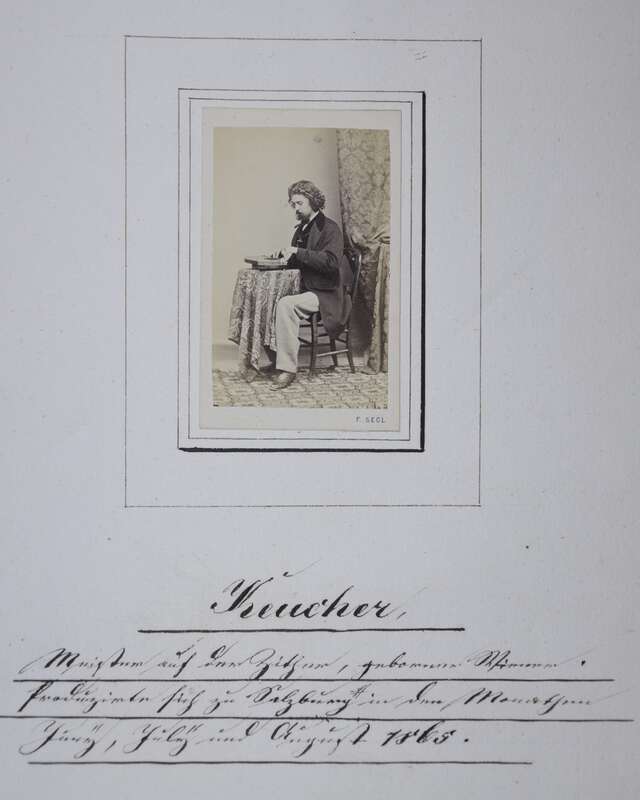 F. SEGL
Kuucher,
Meister auf der Zither, geborner Wiener.
Produzirte sich zu Salzburg in den Monathen
Juny, July und August 1865.